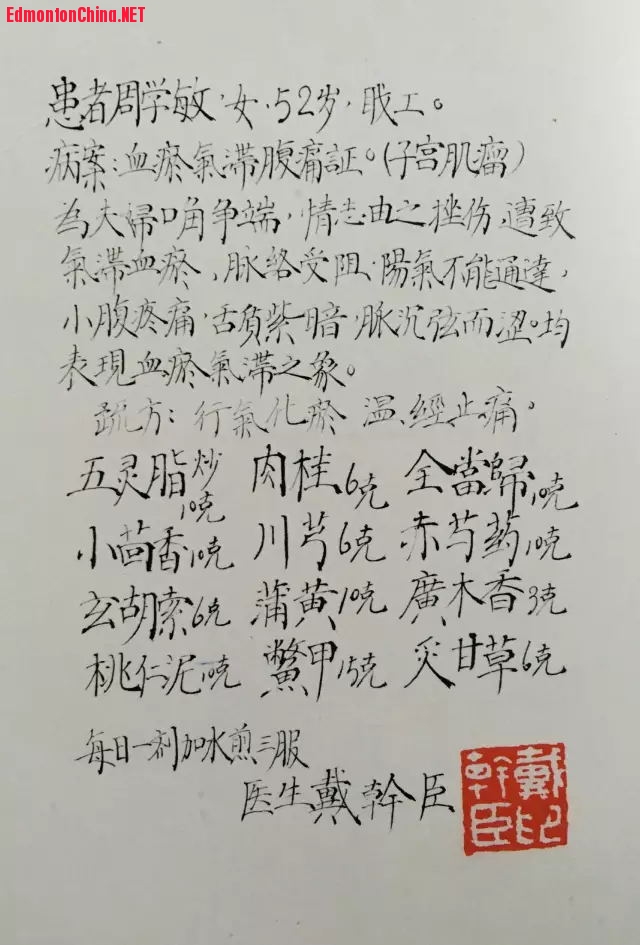 EdmontonChina.NET
患者周学敏，女，52岁，职工。
病案：血瘀氣滞腹痛証。（子宫肌瘤）
為夫婦口角争端，情志由之挫伤，遭致
氣滞血瘀，脉络受阻，陽氣不能通達，
小腹疼痛，舌質紫暗，脉沉弦而涩。均
表現血瘀氣滞之象。
疏方：行氣化瘀 温經止痛。
五灵脂炒10克 肉桂6克 全當歸10克
小茴香10克 川芎6克 赤芍药10克
玄胡索6克 蒲黄10克 廣木香3克
桃仁泥10克 鱉甲15克 炙甘草6克
每日一剂加水煎三服
医生戴幹臣
戴印
幹臣